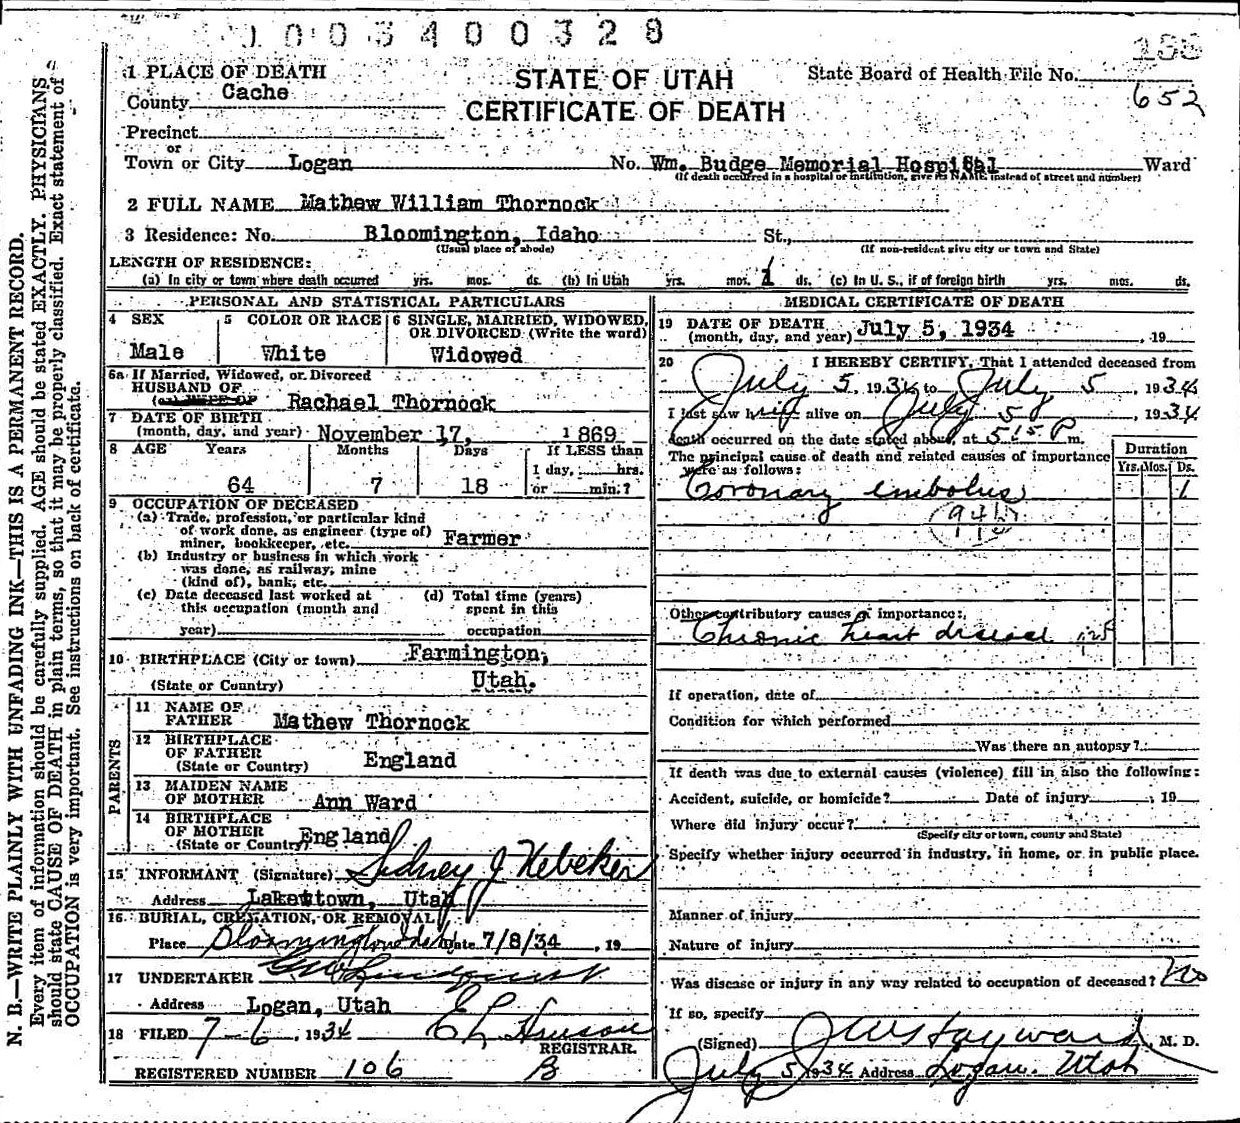 1003400328
1 PLACE OF DEATH
STATE OF UTAH
State Board of Health File No.
County Cache
CERTIFICATE OF DEATH
652
Precinct
or
Town or City Logan No. Wm. Budge Memorial Hospital Ward
(If death occurred in a hospital or institution, give its NAME instead of street and number)
2 FULL NAME Mathew William Thornock
3 Residence: No. Bloomington, Idaho St.,
(Usual place of abode) (If non-resident give city or town and State)
LENGTH OF RESIDENCE:
(a) In city or town where death occurred yrs. mos. ds. (b) In Utah yrs. mos. 1 ds. (c) In U. S., if of foreign birth yrs. mos. ds.
PERSONAL AND STATISTICAL PARTICULARS
4 SEX 5 COLOR OR RACE 6 SINGLE, MARRIED, WIDOWED, OR DIVORCED (Write the word)
Male White Widowed
6a If Married, Widowed, or Divorced
HUSBAND OF
(or) WIFE OF Rachael Thornock
7 DATE OF BIRTH
(month, day, and year) November 17, 1869
8 AGE Years Months Days If LESS than
1 day, hrs.
64 7 18 or min.?
9 OCCUPATION OF DECEASED
(a) Trade, profession, or particular kind
of work done, as engineer (type of)
miner, bookkeeper, etc. Farmer
(b) Industry or business in which work
was done, as railway, mine
(kind of), bank, etc.
(c) Date deceased last worked at (d) Total time (years)
this occupation (month and spent in this
year) occupation
10 BIRTHPLACE (City or town) Farmington,
(State or Country) Utah.
PARENTS
11 NAME OF
FATHER Mathew Thornock
12 BIRTHPLACE
OF FATHER
(State or Country) England
13 MAIDEN NAME
OF MOTHER Ann Ward
14 BIRTHPLACE
OF MOTHER
(State or Country) England
15 INFORMANT (Signature) Sidney J Nebeker
Address Laketown, Utah
16 BURIAL, CREMATION, OR REMOVAL
Place Bloomington Idah Date 7/8/34, 19
17 UNDERTAKER
Address Logan, Utah
18 FILED 7-6, 1934
REGISTRAR.
REGISTERED NUMBER 106
MEDICAL CERTIFICATE OF DEATH
19 DATE OF DEATH
(month, day, and year) July 5, 1934, 19
20 I HEREBY CERTIFY, That I attended deceased from
July 5, 1934 to July 5, 1934
I last saw him alive on July 5, 1934
death occurred on the date stated above, at 5 15 P m.
The principal cause of death and related causes of importance
were as follows:
Duration
Yrs. Mos. Ds.
Coronary embolus 1
94b
Other contributory causes of importance:
Chronic heart disease
If operation, date of
Condition for which performed
Was there an autopsy?
If death was due to external causes (violence) fill in also the following:
Accident, suicide, or homicide? Date of injury, 19
Where did injury occur?
(Specify city or town, county and State)
Specify whether injury occurred in industry, in home, or in public place.
Manner of injury
Nature of injury
Was disease or injury in any way related to occupation of deceased? No
If so, specify
(Signed) J W Hayward, M. D.
July 5 1934 Address Logan. Utah
N. B.—WRITE PLAINLY WITH UNFADING INK—THIS IS A PERMANENT RECORD.
Every item of information should be carefully supplied. AGE should be stated EXACTLY. PHYSICIANS
should state CAUSE OF DEATH in plain terms, so that it may be properly classified. Exact statement of
OCCUPATION is very important. See instructions on back of certificate.